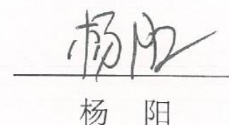 杨阳
杨 阳